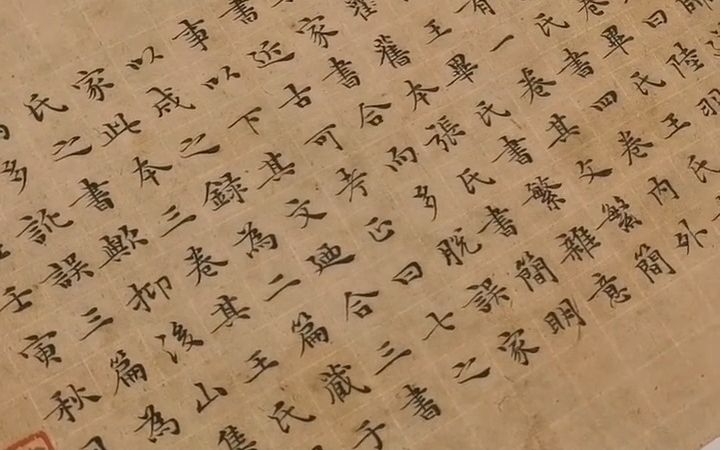 曰陸羽
卷畢氏王氏
氏書四卷内外
有一卷其文繁簡
王畢氏書繁雜意
舊本張氏書簡明
家書合而多脫誤家
書近古可考正曰七之
事以下其文迺合三書
以成之錄為二篇藏子
家此本三卷其王氏
氏之書歟抑後山集
多託誤三篇為
壬寅秋